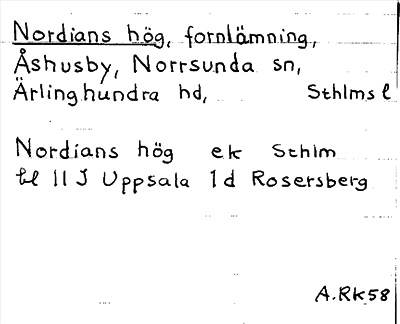 Nordians hög, fornlämning,
Åshusby, Norrsunda sn,
Ärlinghundra hd, Sthlms l
Nordians hög ek Sthlm
bl 11 J Uppsala 1d Rosersberg
A.Rk58